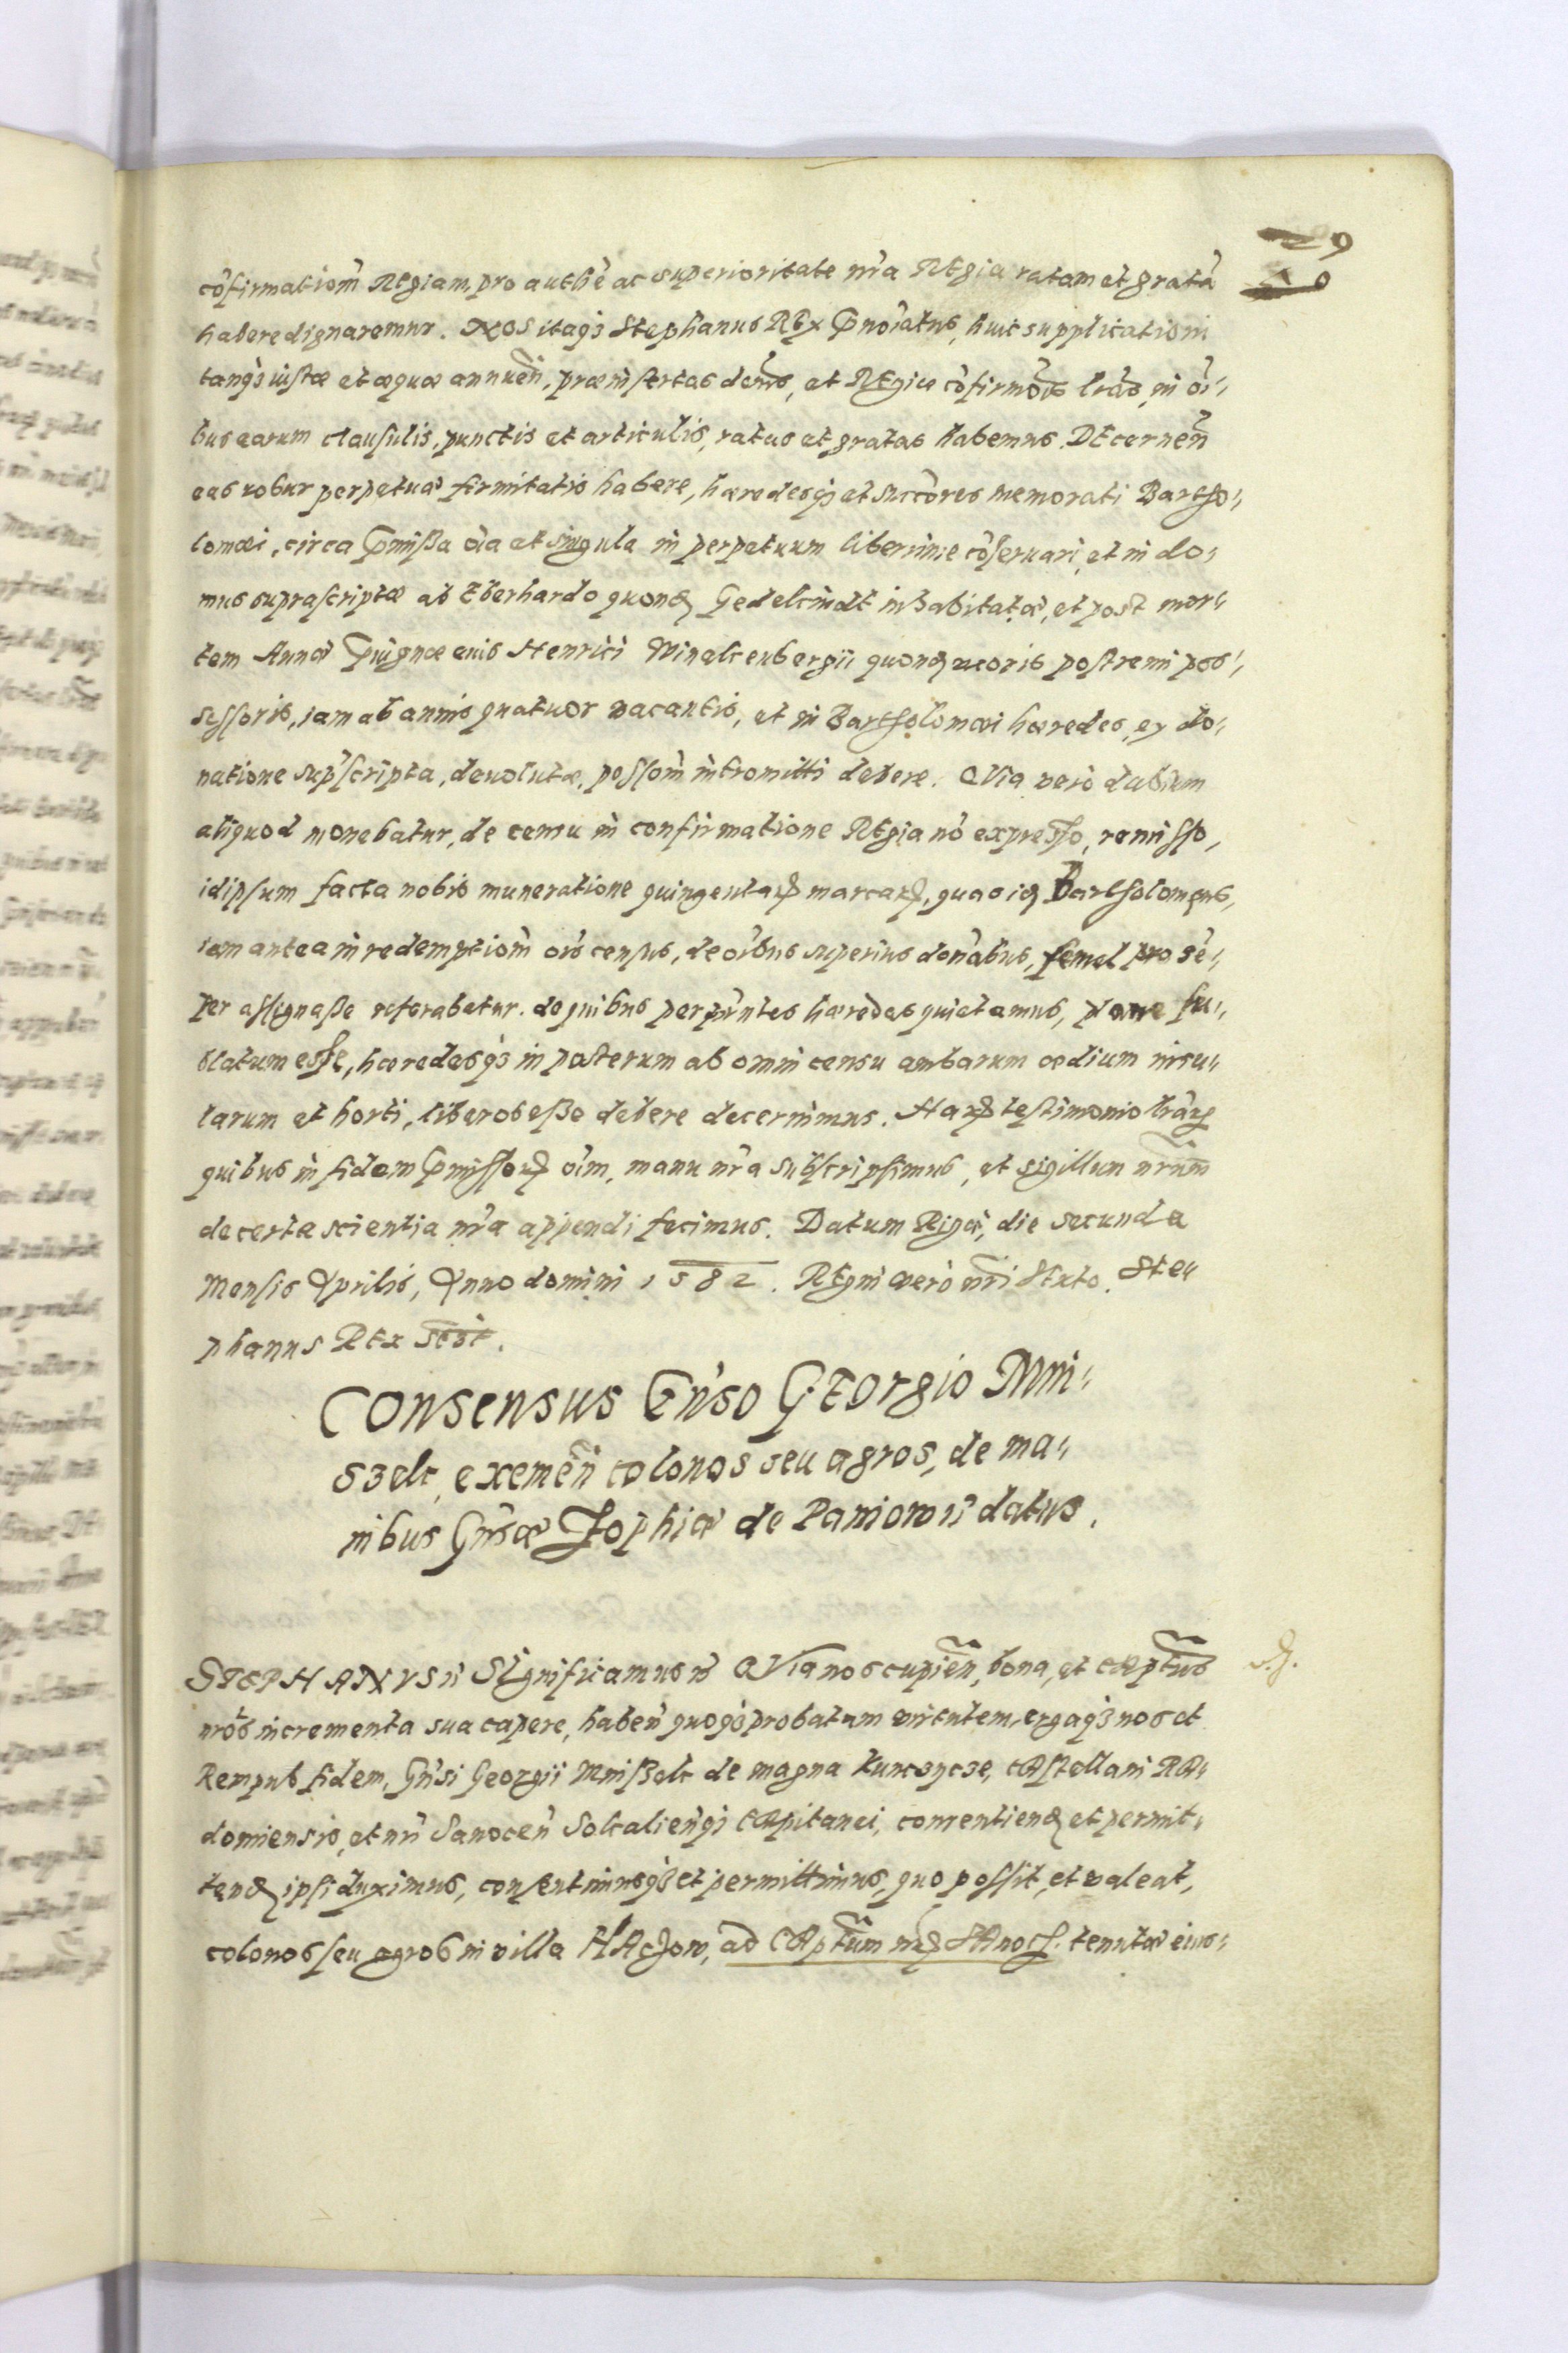 29
cõfirmationẽ Regiam, pro authẽ ac superioritate nr̃a Regia ratam et gratã
habere dignaremur. NOS itaqꝫ Stephanus REx p̃noĩatus, huic supplicationi
tanqꝫ iustæ et æquæ annueñ, præinsertas doñis, et Regiæ cõfirmõis lr̃as, in oĩ-
bus earum clausulis, punctis et articulis, ratas et gratas habemus. DEcerneñ
eas robur perpetuæ firmitatis habere, hæredesqꝫ et succõres memorati Bartho-
lomæi, circa p̃missa oĩa et singula in perpetuum liberrime cõseruari, et in do-
mus suprascriptæ ab Eberhardo quonꝺ Gedelcindt inhabitatæ, et post mor-
tem Annæ Henrici quonꝺ uxoris postremi pos-
sessoris, iam ab annis quatuor vacantis, et in Bartholomæi hæredes, ex do-
natione supscripta, deuolutæ, possom̃ intromitti debere. QVia verò dubium
aliquod monebatur, de censu in confirmatione Regia nõ expresso, remisso,
idipsum facta nobis muneratione quingentaꝝ marcaꝝ, quas iꝺ Bartholomeus,
iam antea in redemptiom̃ oĩs census, de oĩbus superius donãbus, semel pro sẽ-
per assignasse referebatur. de quibus perpñtes hæredes quietamus, plane su-
blatum esse, hæredesqꝫ in posterum ab omni censu ambarum ædium insu-
larum et horti, liberos esse debere decernimus. Haꝝ testimonio lr̃aꝝ
quibus in fidem p̃missoꝝ oĩm, manu nr̃a subscripsimus, et sigillum nr̃um
de certa scientia nr̃a appendi fecimus. Datum Rigæ, die secunda
Mensis Aprilis, Anno domini 1582. Regni verò nr̃i Sexto. Ste-
phanus REx sc̃sit.
Consensus Gñso GEorgio Mni-
szek, eximeñ colonos seu agros, de ma-
nibus Gñsæ Sophiæ de Paniowij datus.
STEPHANVS ñ SIgnificamus ñ QVia nos cupieñ, bona, et CAptũs
nr̃os incrementa sua capere, habeñ quoqꝫ probatam virtutem, ergaqꝫ nos et
Rempub fidem, Gñsi Georgii Mniszek de magna Kunczycze, CAstellani RA-
domiensis, et nr̃i Sanoceñ Sokalieñqꝫ CApitanei, consentienꝺ et permit-
tenꝺ ipsi duximus, consentimusqꝫ et permittimus, quo possit, et valeat,
colonos seu agros in villa HAczow, ad CAptũm nr̃ꝝ SAnocꝭ. tenutæ eius-